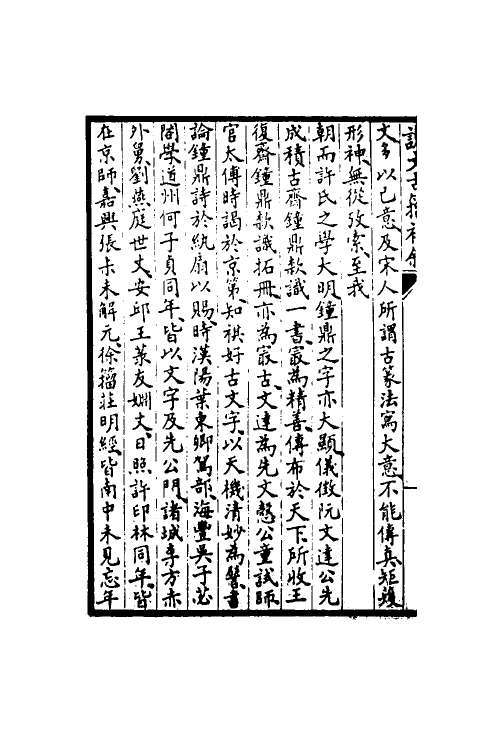 文多以己意及宋人所謂古篆法寫大意不能傳真矩矱
形神無從攷索至我
朝而許氏之學大明鐘鼎之字亦大顯儀徵阮文達公先
成積古齋鐘鼎款識一書㝡為精善傳布於天下所收王
復齋鐘鼎款識拓冊亦為㝡古文達為先文慤公童試師
官太傅時謁於京第知祺好古文字以天機清妙為譽書
論鐘鼎詩於紈扇以賜時漢陽葉東卿駕部海豐吳子苾
閣學道州何子貞同年皆以文字及先公門諸城李方赤
外舅劉燕庭世丈安邱王菉友姻丈日照許印林同年皆
在京師嘉興張未未解元徐籀莊明經皆南中未見忘年